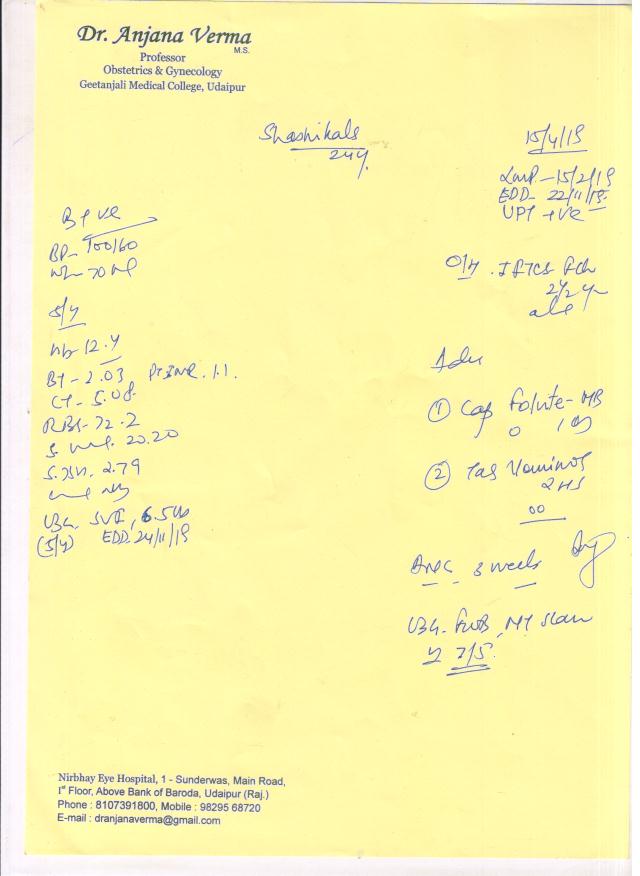 Dr. Anjana Verma
M.S.
Professor
Obstetrics & Gynecology
Geetanjali Medical College, Udaipur
Shashikala
24y.
15/4/19
LMP - 15/2/19
EDD - 22/11/19
UPT +ve
B +ve
BP - 100/60
5/4
Hb - 12.4
BT - 2.03 PT INR. 1.1.
CT - 5.08.
RBS - 72.2
20.20
S. TSH. 2.79
USG. SLF, 6.5
(5/4) EDD. 24/11/19
O/H
2½ y
Adv
① Cap Folvite - MB
② Tab
2 HS
3 weeks
USG. FWB, NT scan
7/5.
Nirbhay Eye Hospital, 1 - Sunderwas, Main Road,
Ist Floor, Above Bank of Baroda, Udaipur (Raj.)
Phone : 8107391800, Mobile : 98295 68720
E-mail : dranjanaverma@gmail.com